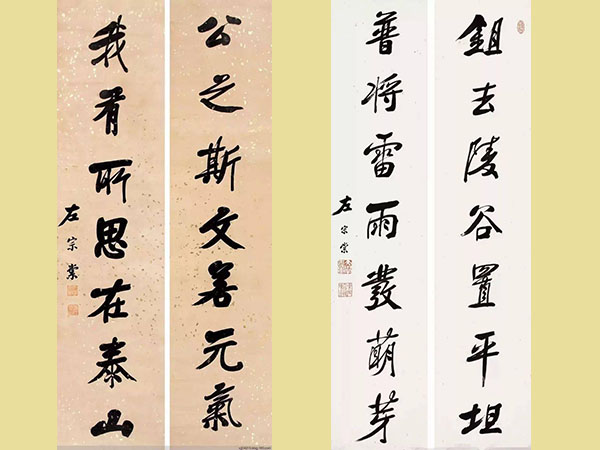 鉏去陵谷置平坦
普将雷雨發萌芽
左宗棠
公之斯文若元氣
我有所思在泰山
左宗棠